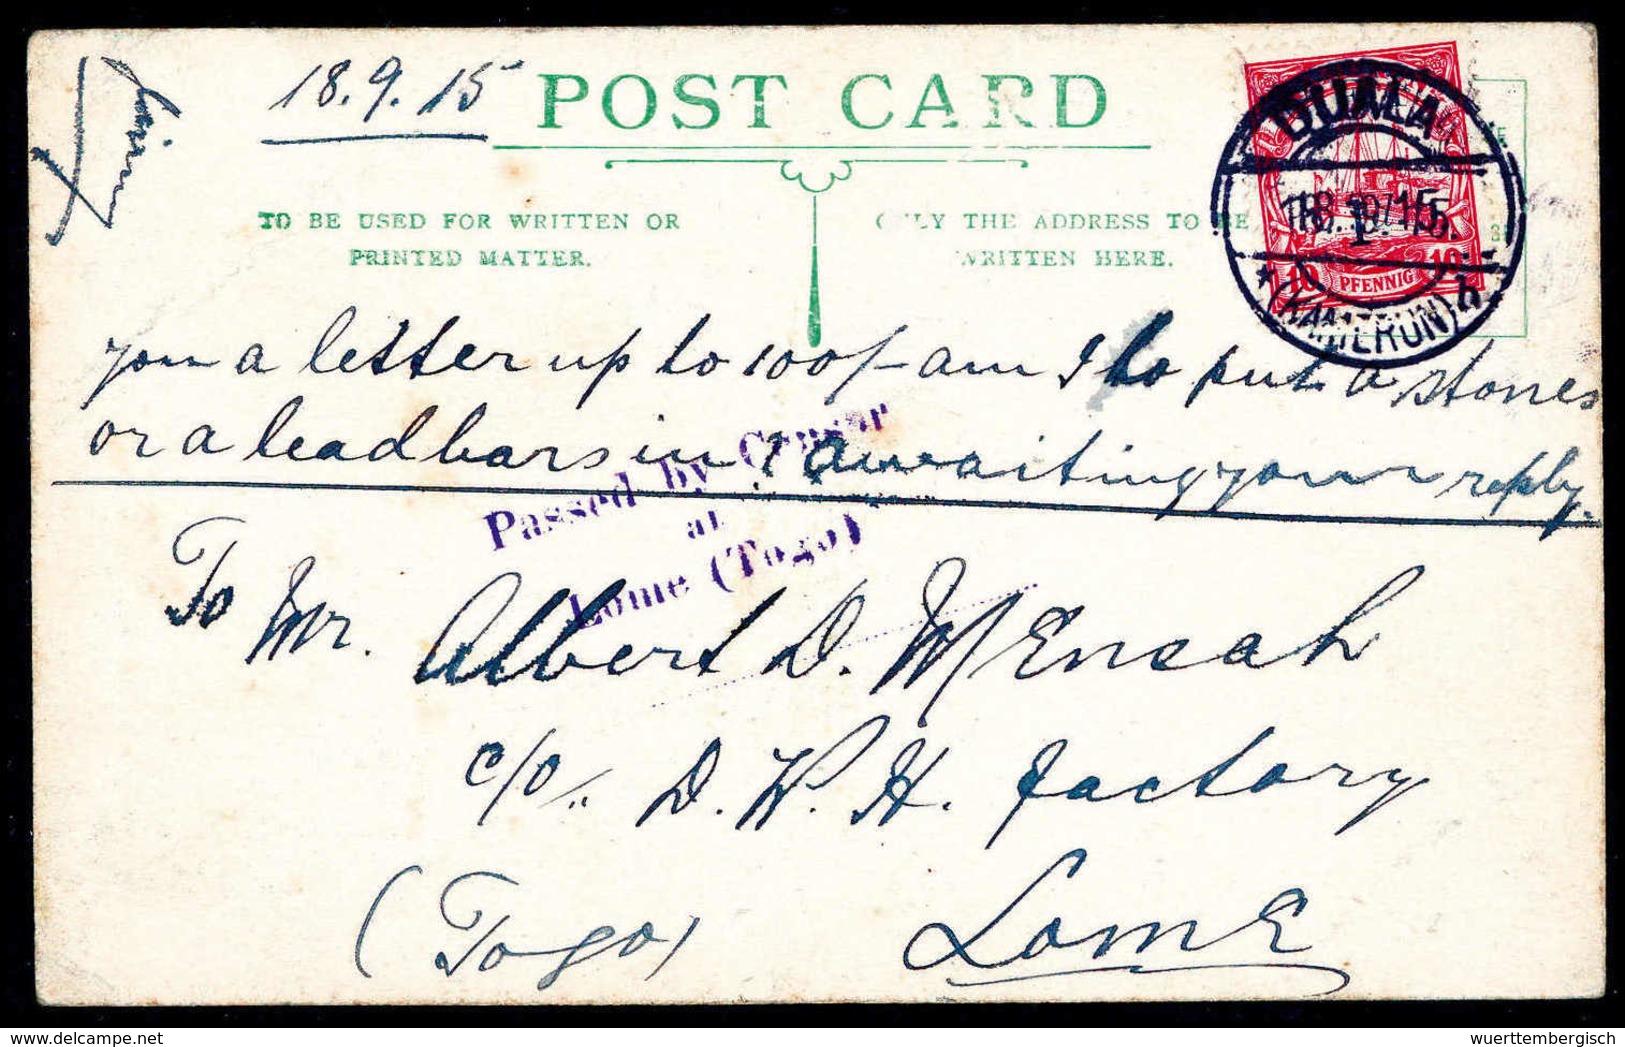 18.9.15
POST CARD
TO BE USED FOR WRITTEN OR
PRINTED MATTER.
ONLY THE ADDRESS TO BE
WRITTEN HERE.
DUALA
(KAMERUN) b
10 PFENNIG 10
your a letter up to 100/- am I to put a stones
or a lead bars in ? awaiting your reply.
Passed by Censor
at
Lome (Togo)
To Mr. Albert D. MEnsah
c/o D. W. H. factory
(Togo) LomE
wuerttembergisch